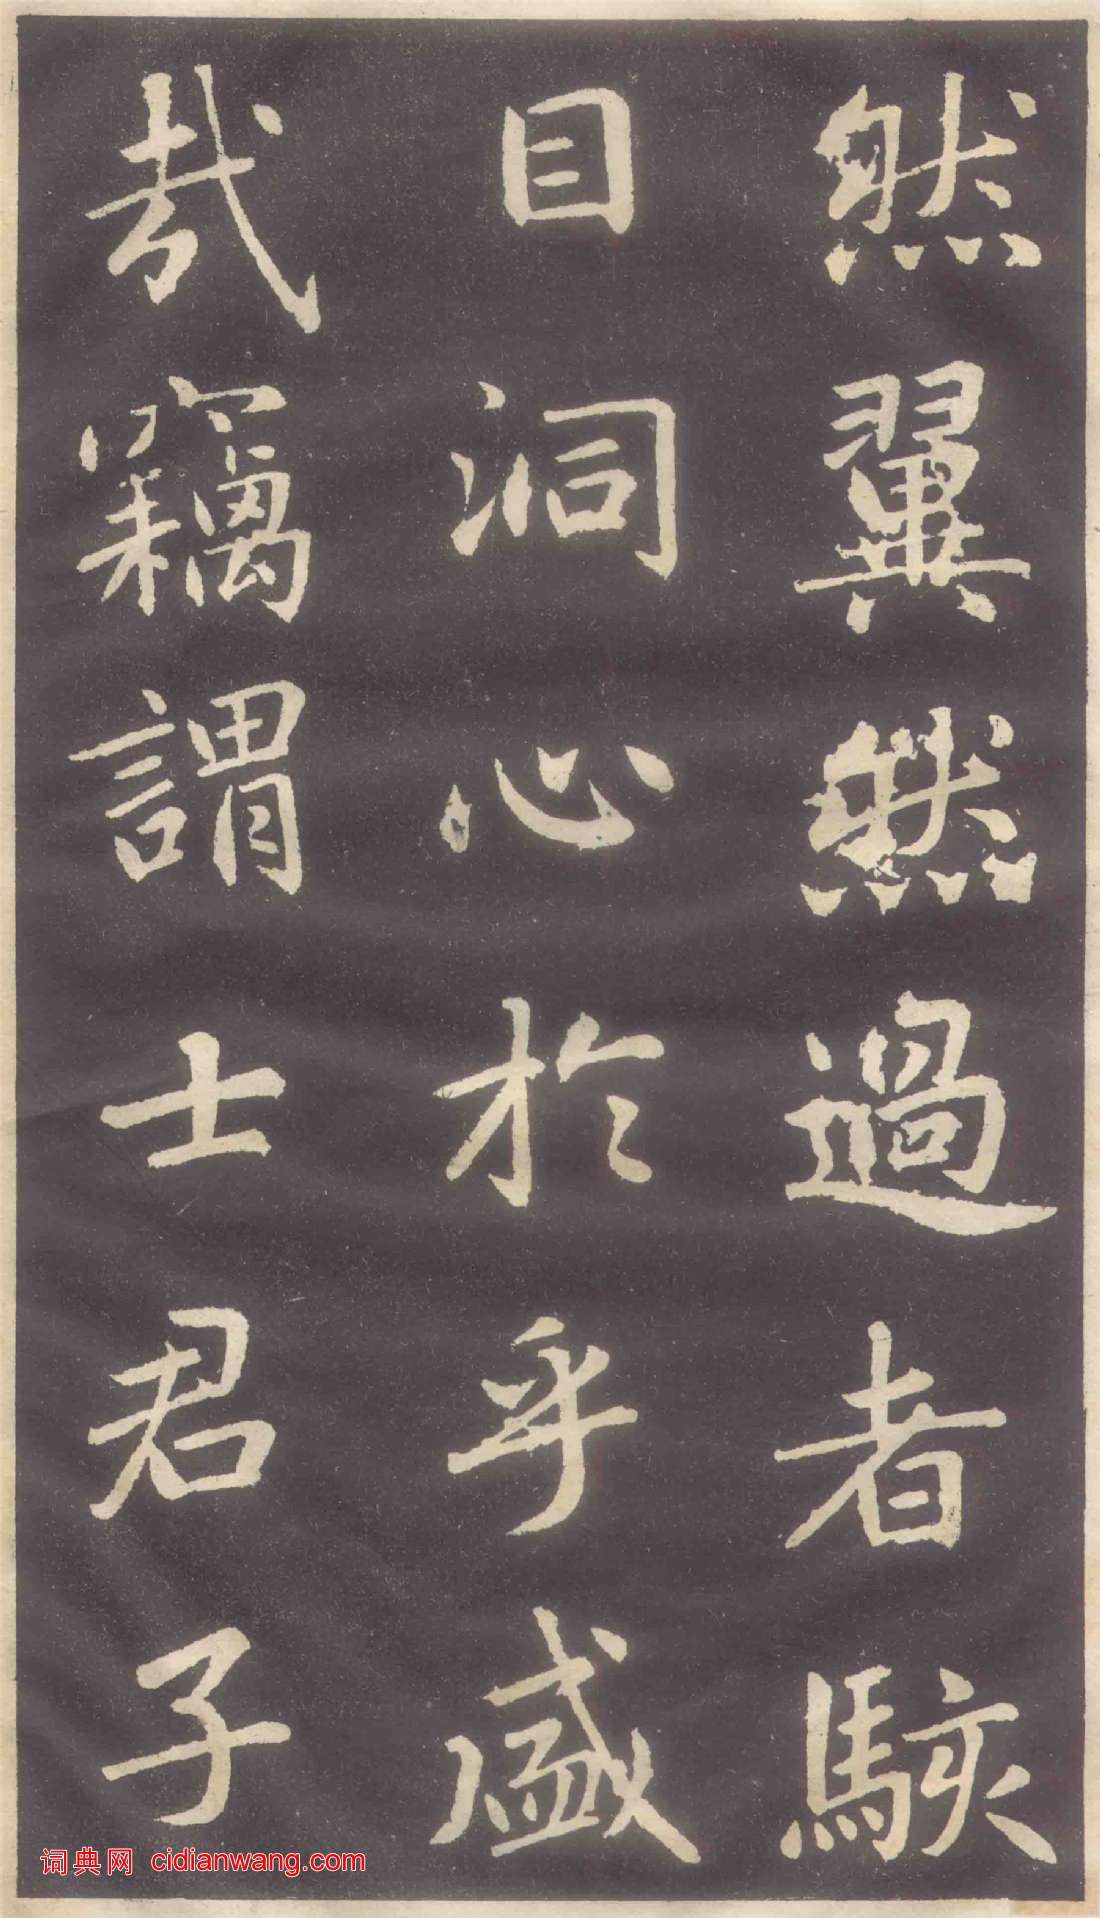 然翼然過者駭
目洞心於乎盛
哉竊謂士君子
词典网 cidianwang.com